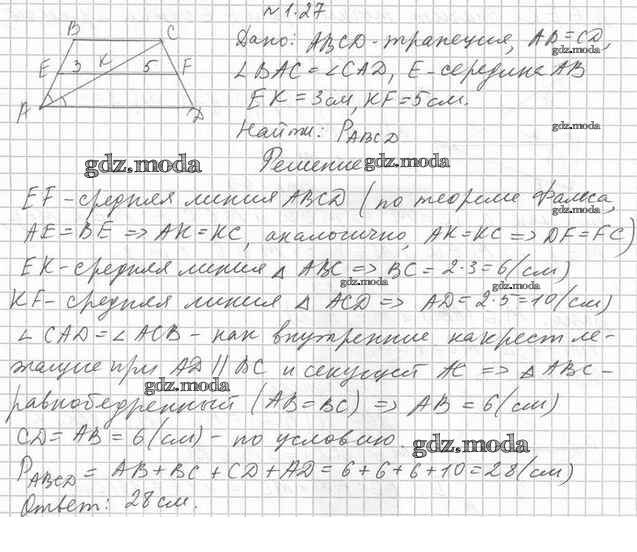 № 1.27
B C
E 3 K 5 F
A D
Дано: ABCD - трапеция, AB = CD,
∠BAC = ∠CAD, E - середина AB
EK = 3 см, KF = 5 см.
Найти: P_ABCD
Решение
EF - средняя линия ABCD (по теореме Фалеса,
AE = BE => AK = KC, аналогично, AK = KC => DF = FC)
EK - средняя линия △ ABC => BC = 2·3 = 6 (см)
KF - средняя линия △ ACD => AD = 2·5 = 10 (см)
∠ CAD = ∠ ACB - как внутренние накрест ле-
жащие при AD || BC и секущей AC => △ ABC -
равнобедренный (AB = BC) => AB = 6 (см)
CD = AB = 6 (см) - по условию.
P_ABCD = AB + BC + CD + AD = 6 + 6 + 6 + 10 = 28 (см)
Ответ: 28 см.
gdz.moda
gdz.moda
gdz.moda
gdz.moda
gdz.moda
gdz.moda
gdz.moda
gdz.moda
gdz.moda